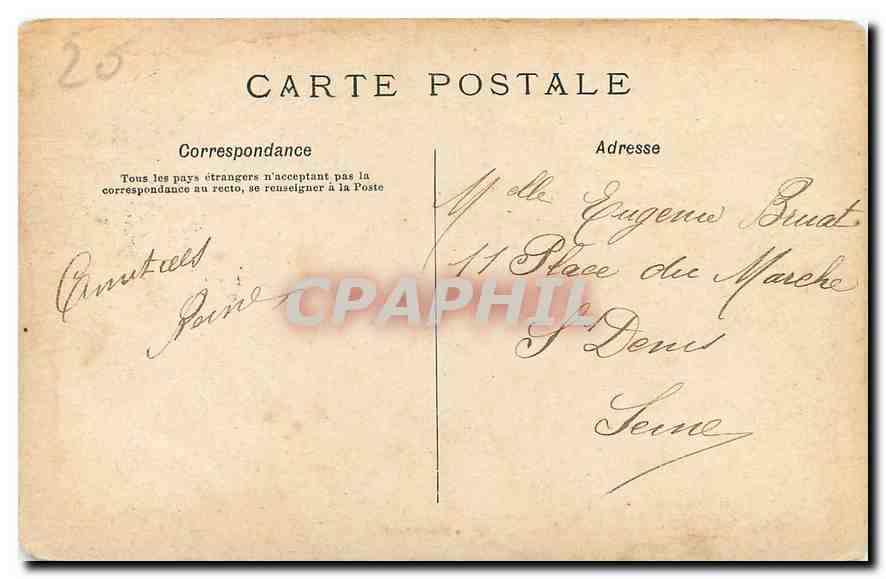 25
CARTE POSTALE
Correspondance
Tous les pays étrangers n'acceptant pas la
correspondance au recto, se renseigner à la Poste
Amitiés
Adresse
Melle Eugenie Bruat
11 Place du Marche
St Denis
Seine
CPAPHIL